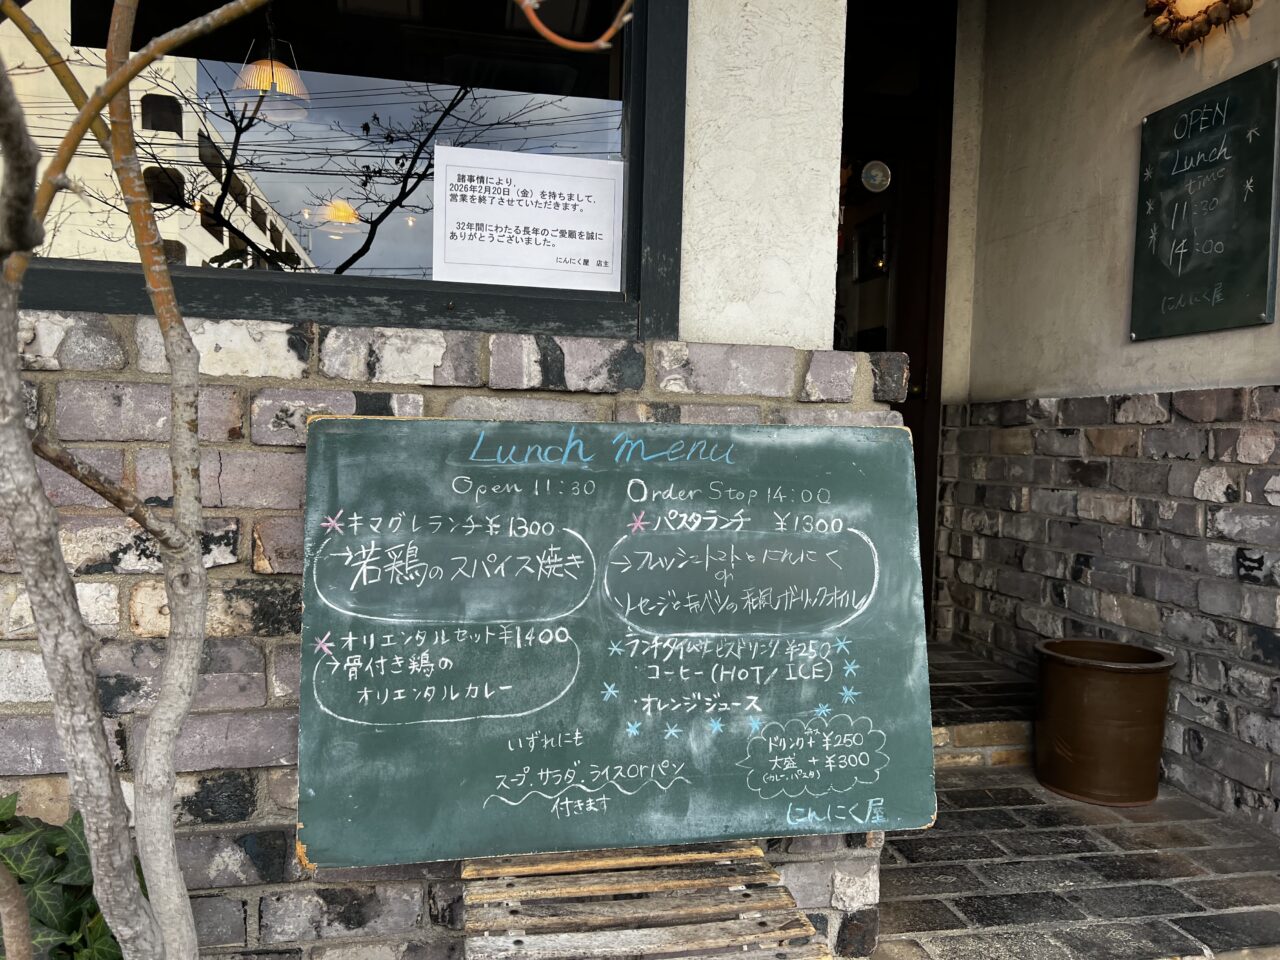 諸事情により、
2026年2月20日（金）を持ちまして、
営業を終了させていただきます。
32年間にわたる長年のご愛顧を誠に
ありがとうございました。
にんにく屋　店主
OPEN
Lunch
time
11:30
14:00
にんにく屋
Lunch menu
Open 11:30 Order Stop 14:00
*キマグレランチ¥1300
→若鶏のスパイス焼き
*オリエンタルセット¥1400
→骨付き鶏の
オリエンタルカレー
*パスタランチ ¥1300
→フレッシュトマトとにんにく
or
ソーセージとキャベツの和風ガーリックオイル
ランチタイムサービスドリンク ¥250
・コーヒー(HOT/ICE)
・オレンジジュース
いずれにも
スープ.サラダ.ライスorパン
付きます
ドリンク+¥250
大盛 +¥300
(カレー.パスタ)
にんにく屋